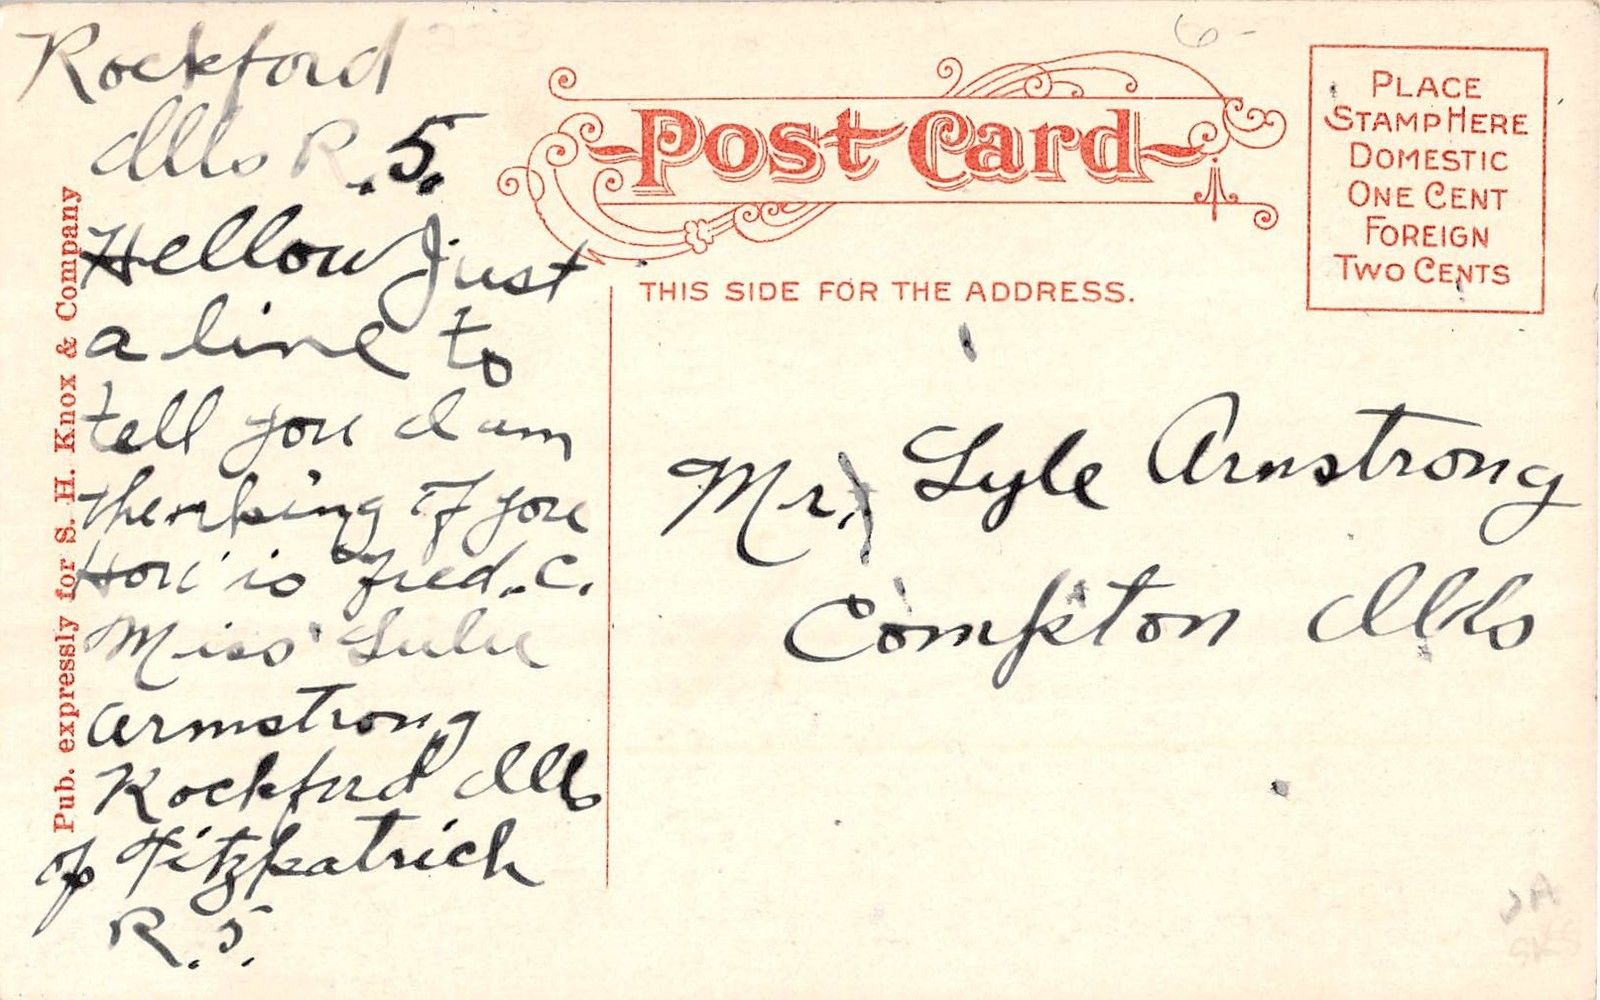 Rockford
Ills R.5.
Hellow Just
a line to
tell you I am
thenking of you
How is Fred. C.
Miss Lulu
Armstrong
Rockford Ills
of Fitzpatrick
R.5.
Pub. expressly for S. H. Knox & Company
Post Card
THIS SIDE FOR THE ADDRESS.
PLACE
STAMP HERE
DOMESTIC
ONE CENT
FOREIGN
TWO CENTS
Mr. Lyle Armstrong
Compton Ills
6-